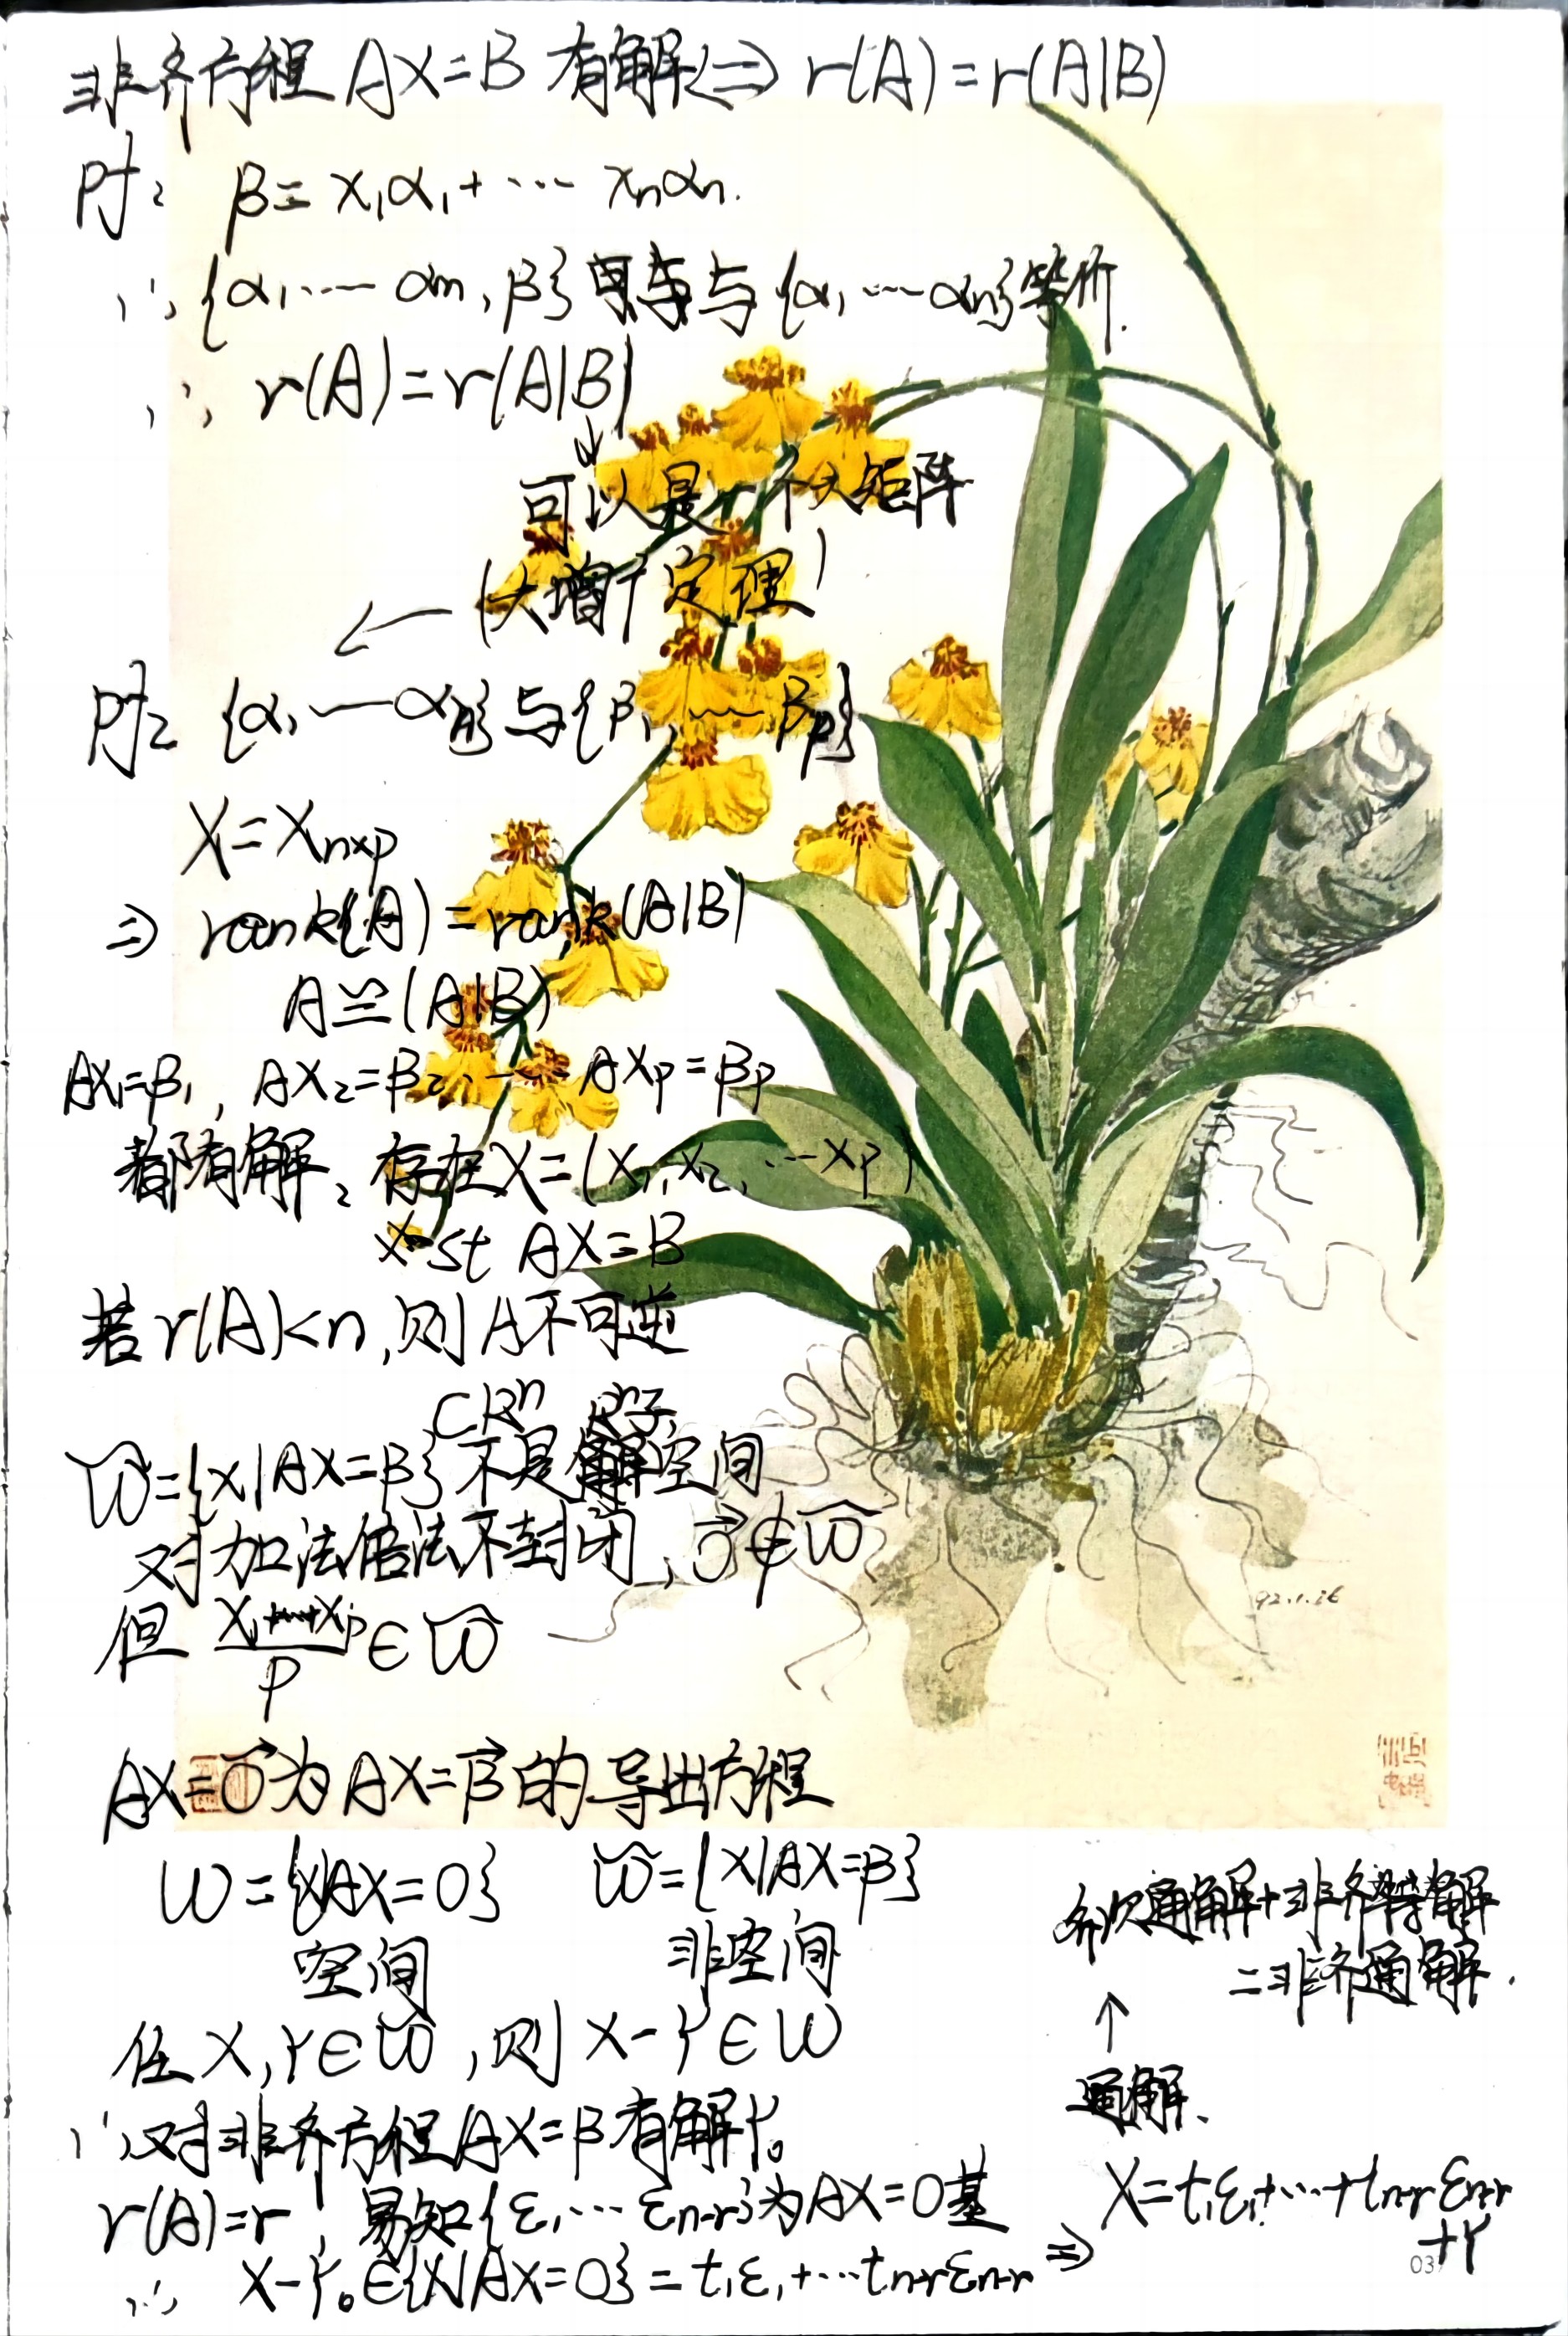 非齐方程 AX=B 有解⇔ r(A)=r(A|B)
β= x₁α₁+⋯ xₙαₙ.
∴ {α₁⋯ αm, β} 与 {α₁⋯αn}等价.
∴ r(A)=r(A|B)
↓
可以是一个大矩阵
← (大增广定理)
{α₁—αn}与{β₁, —βp}
X=Xn×p
⇒ rank(A)=rank(A|B)
A≌(A|B)
AX₁=β₁, AX₂=β₂, — AXp=βp
都有解, 存在X=(X₁,X₂,⋯Xp)
st AX=B
若 r(A)<n, 则 A不可逆
⊂Rⁿ Rⁿ子
W̃={X|AX=β} 不是解空间
对加法倍法不封闭, 0⃗∉W̃
但 (X₁+⋯+Xp)/P ∈ W̃
AX=0⃗为 AX=β⃗ 的导出方程
W={X|AX=0} W̃={X|AX=β}
空间 非空间
任 X,Y∈W̃, 则 X-Y∈W
∴对非齐方程 AX=β 有解Y₀
r(A)=r, 易知{ε₁⋯εn-r}为AX=0基
∴ X-Y₀∈{X|AX=0}=t₁ε₁+⋯tn-rεn-r ⇒
齐次通解+非齐特解
=非齐通解.
↑
通解.
X=t₁ε₁+⋯+tn-rεn-r
+Y
92.1.26
03